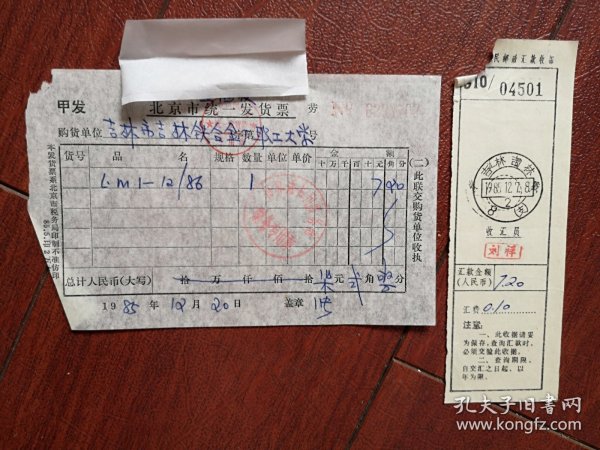 甲发
北京市统一发货票
购货单位 吉林市吉林铁合金厂职工大学 号
货号 品名 规格 数量 单位 单价 金额
十万千百十元角分
L.m 1-12/86 1 7 20
总计人民币(大写) 拾 万 仟 佰 拾 柒 元 贰 角 零 分
1985 年 12 月 20 日 盖章
(二)此联交购货单位收执
民邮政汇款收据
04501
吉林
1985.12.2
8
(支)
收汇员
刘祥
汇款金额
(人民币) 7.20
汇费 0.10
注意:
一、此收据请妥
为保存,查询汇款时,
必须交验此收据。
二、查询期限,
自交汇之日起、以
年为限。
孔夫子旧书网
www.kongfz.com